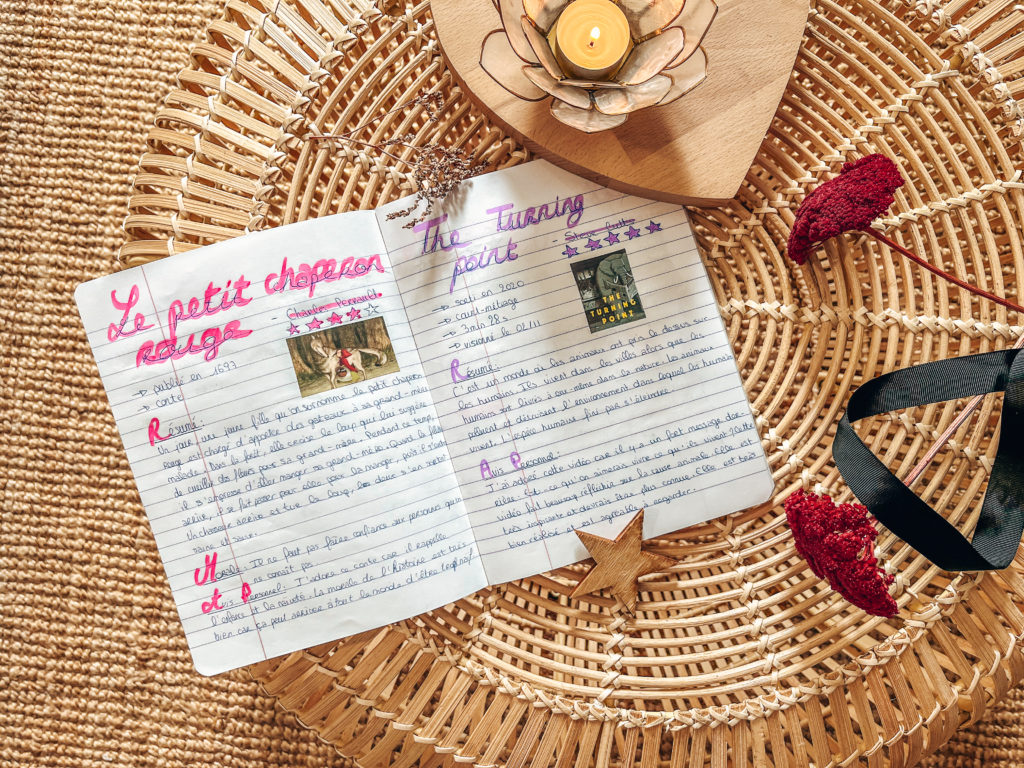 Le petit chaperon
rouge
- Charles Perrault
→ publié en 1697
→ conte
Résumé:
Un jour, une jeune fille qu'on surnomme le petit chaperon
rouge est chargé d'apporter des gateaux à sa grand-mère
malade. Dans la forêt, elle croise le loup qui lui suggère
de cueillir des fleurs pour sa grand-mère. Pendant ce temps,
il s'empresse d'aller manger sa grand-mère. Quand la fille
arrive, il se fait passer pour elle pour la manger, puis il s'endort.
Un chasseur arrive et tue le loup, les deux s'en sortent
saine et sauve.
Morale: Il ne faut pas faire confiance aux personne qu'on
ne connaît pas
Avis Personnel: J'adore ce conte car il rappelle
l'enfance et la naiveté. La morale de l'histoire est très
bien car ça peut arriver à tout le monde d'être trop naïf
The Turning
point
- Steve Cutts
→ sorti en 2020
→ court-métrage
→ 3min 28s
→ visionné le 02/11
THE
TURNING
POINT
Résumé:
C'est un monde où les animaux ont pris le dessus sur
les humains. Ils vivent dans les villes alors que les
humains sont livrés à eux-même dans la nature. Les animaux
polluent et détruisent l'environnement dans lequel les humains
vivent. L'espèce humaine fini par s'éteindre.
Avis Personnel:
J'ai adoré cette vidéo car il y a un fort message der-
rière. Est-ce qu'on aimerait vivre ce qu'ils vivent? Cette
vidéo fait beaucoup réfléchir sur la cause animale. Elle est
très inspirante et devrait être plus connue. Elle est très
bien réalisé et est agréable à regarder.